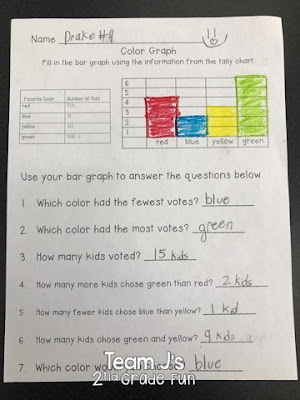 Name Drake #9
Color Graph
Fill in the bar graph using the information from the tally chart.
Favorite Color Number of Kids
red
blue
yellow
green
6
5
4
3
2
1
red blue yellow green
Use your bar graph to answer the questions below
1. Which color had the fewest votes? blue
2. Which color had the most votes? green
3. How many kids voted? 15 kids
4. How many more kids chose green than red? 2 kids
5. How many fewer kids chose blue than yellow? 1 kid
6. How many kids chose green and yellow? 9 kids
7. Which color would choose? blue
Team J's
2nd Grade Fun